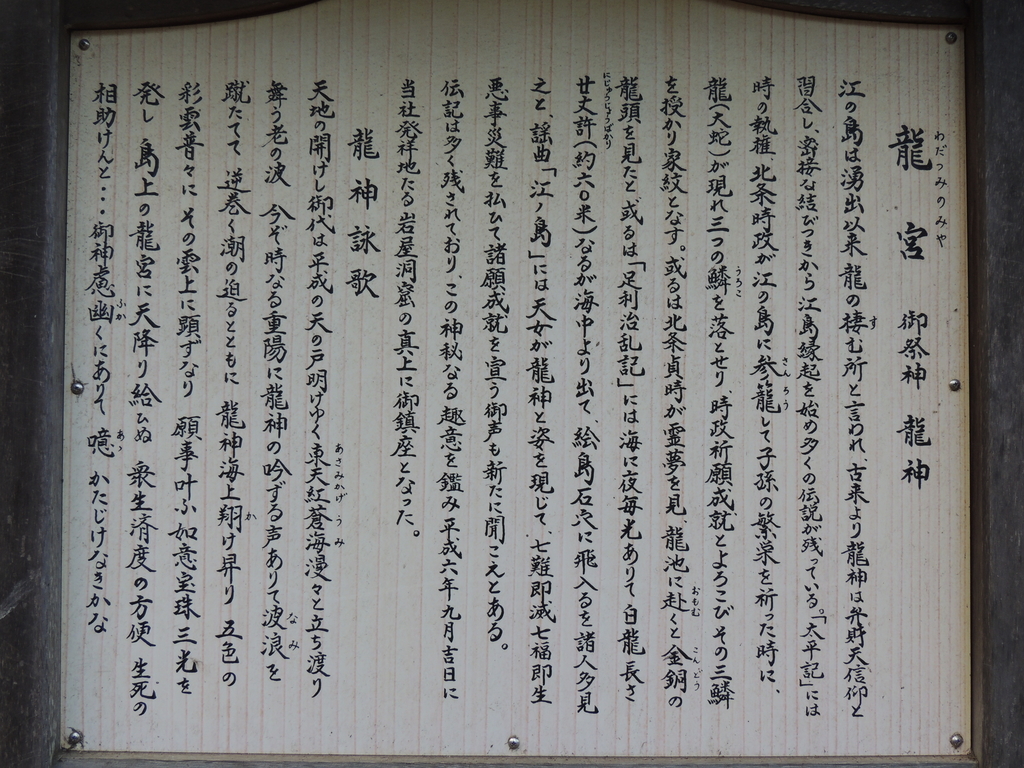 龍宮 御祭神 龍神
江の島は湧出以来龍の棲む所と言われ、古来より龍神は弁財天信仰と
習合し、密接な結びつきから江島縁起を始め多くの伝説が残っている。「太平記」には
時の執権、北条時政が江の島に参籠して子孫の繁栄を祈った時に、
龍(大蛇)が現れ三つの鱗を落とせり、時政祈願成就とよろこびその三鱗
を授かり家紋となす。或るは北条貞時が霊夢を見、龍池に赴くと金銅の
龍頭を見たと、或るは「足利治乱記」には海に夜毎光ありて白龍長さ
廿丈許(約六〇米)なるが海中より出て、絵島石穴に飛入るを諸人多見
之と、謡曲「江ノ島」には天女が龍神と姿を現じて、七難即滅七福即生
悪事災難を払ひて諸願成就を宣う御声も新たに聞こえとある。
伝記は多く残されており、この神秘なる趣意を鑑み平成六年九月吉日に
当社発祥地たる岩屋洞窟の真上に御鎮座となった。
龍神詠歌
天地の開けし御代は平成の天の戸明けゆく東天紅蒼海漫々と立ち渡り
舞う老の波 今ぞ時なる重陽に龍神の吟ずる声ありて波浪を
蹴たてて 逆巻く潮の迫るとともに 龍神海上翔け昇り 五色の
彩雲普々に その雲上に頭ずなり 願事叶ふ如意宝珠三光を
発し 島上の龍宮に天降り給ひぬ 衆生済度の方便 生死の
相助けんと・・・御神慮幽くにありて 噫 かたじけなきかな